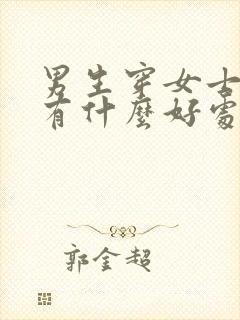 男生穿女士
有什麼好處
郭金超